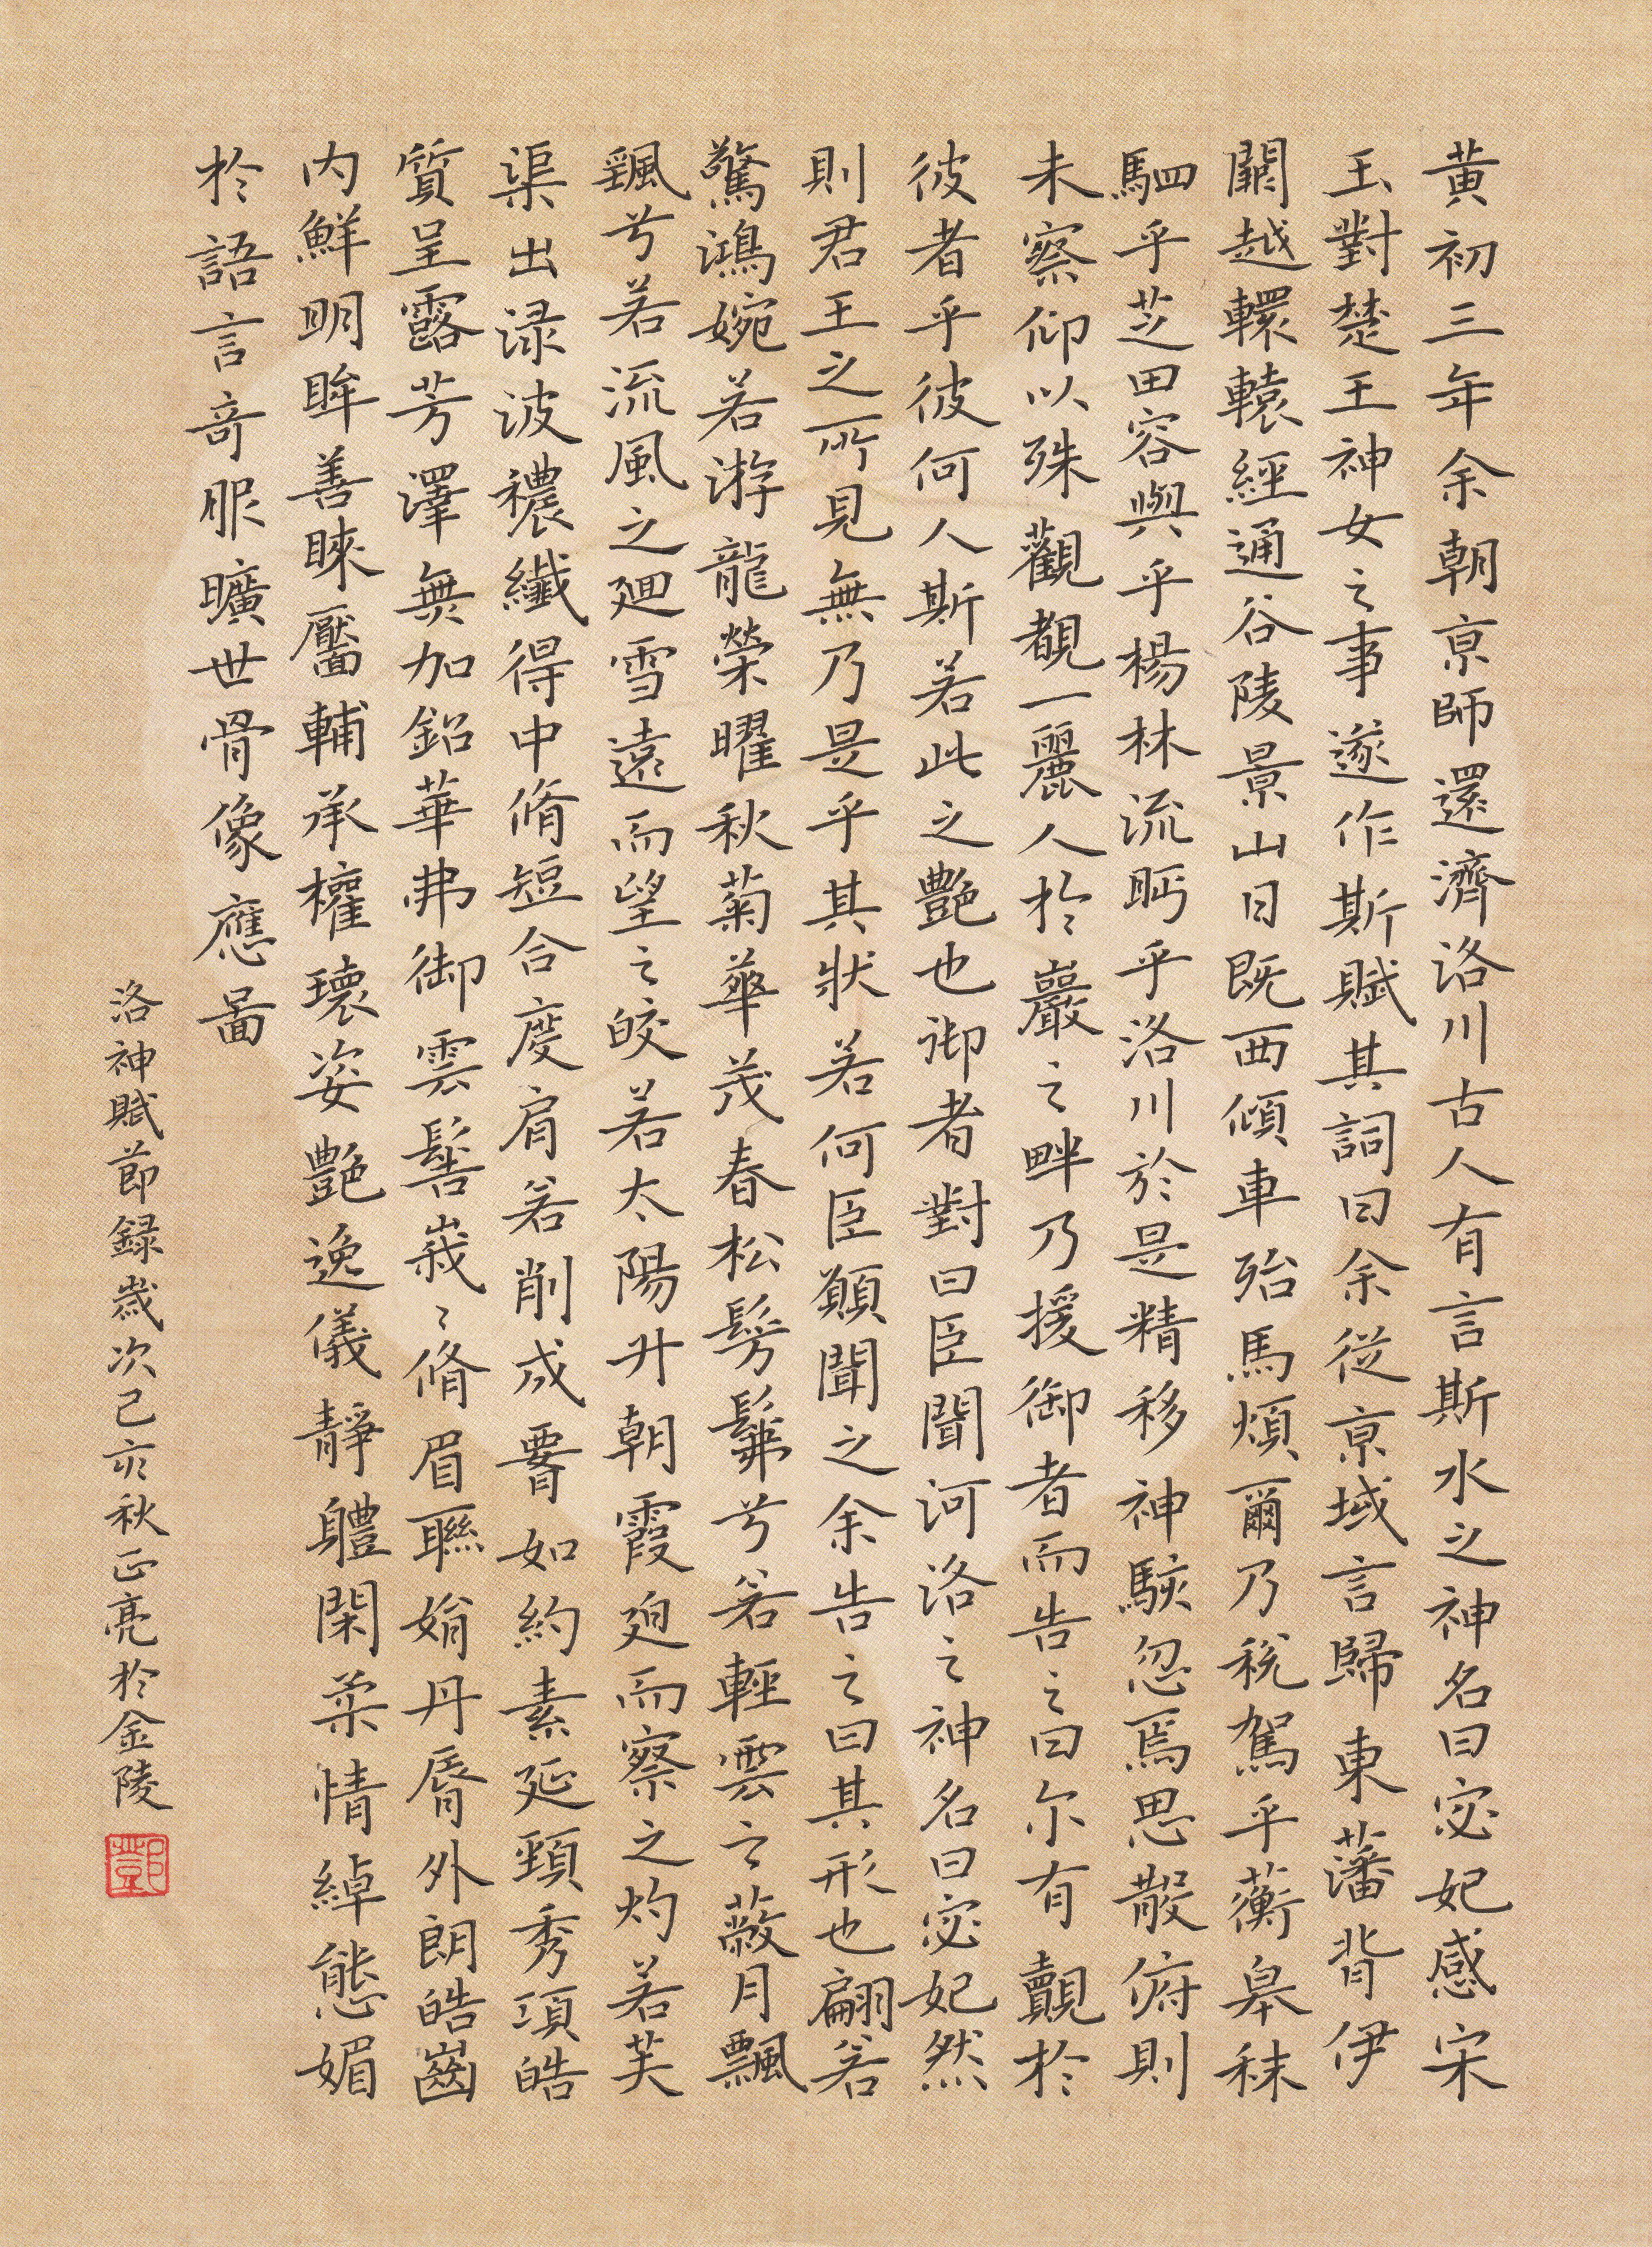 黃初三年余朝京師還濟洛川古人有言斯水之神名曰宓妃感宋
玉對楚王神女之事遂作斯賦其詞曰余從京域言歸東藩背伊
闕越轘轅經通谷陵景山日既西傾車殆馬煩爾乃稅駕乎蘅皋秣
駟乎芝田容與乎楊林流眄乎洛川於是精移神駭忽焉思散俯則
未察仰以殊觀覩一麗人於巖之畔乃援御者而告之曰尓有覿於
彼者乎彼何人斯若此之艷也御者對曰臣聞河洛之神名曰宓妃然
則君王之所見無乃是乎其狀若何臣願聞之余告之曰其形也翩若
驚鴻婉若游龍榮曜秋菊華茂春松髣髴兮若輕雲之蔽月飄
颻兮若流風之迴雪遠而望之皎若太陽升朝霞迫而察之灼若芙
渠出淥波穠纖得中脩短合度肩若削成要如約素延頸秀項皓
質呈露芳澤無加鉛華弗御雲髻峩〻脩眉聯娟丹脣外朗皓齒
内鮮明眸善睞靨輔承權瓌姿艷逸儀靜軆閑柔情綽態媚
於語言奇服曠世骨像應圖
洛神賦節録歲次己亥秋正亮於金陵
鄧